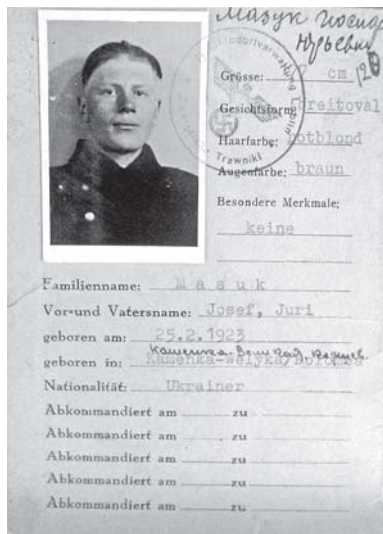 Мазук Иосиф
Юрьевич
Grösse: cm
Gesichtsform: breitoval
Haarfarbe: rotblond
Augenfarbe: braun
Besondere Merkmale:
keine
Trawniki
Familienname: Masuk
Vor-und Vatersname: Josef, Juri
geboren am: 25.2.1923
Каменка-
geboren in: Kamenka-Welyka/
Nationalität: Ukrainer
Abkommandiert am zu
Abkommandiert am zu
Abkommandiert am zu
Abkommandiert am zu
Abkommandiert am zu